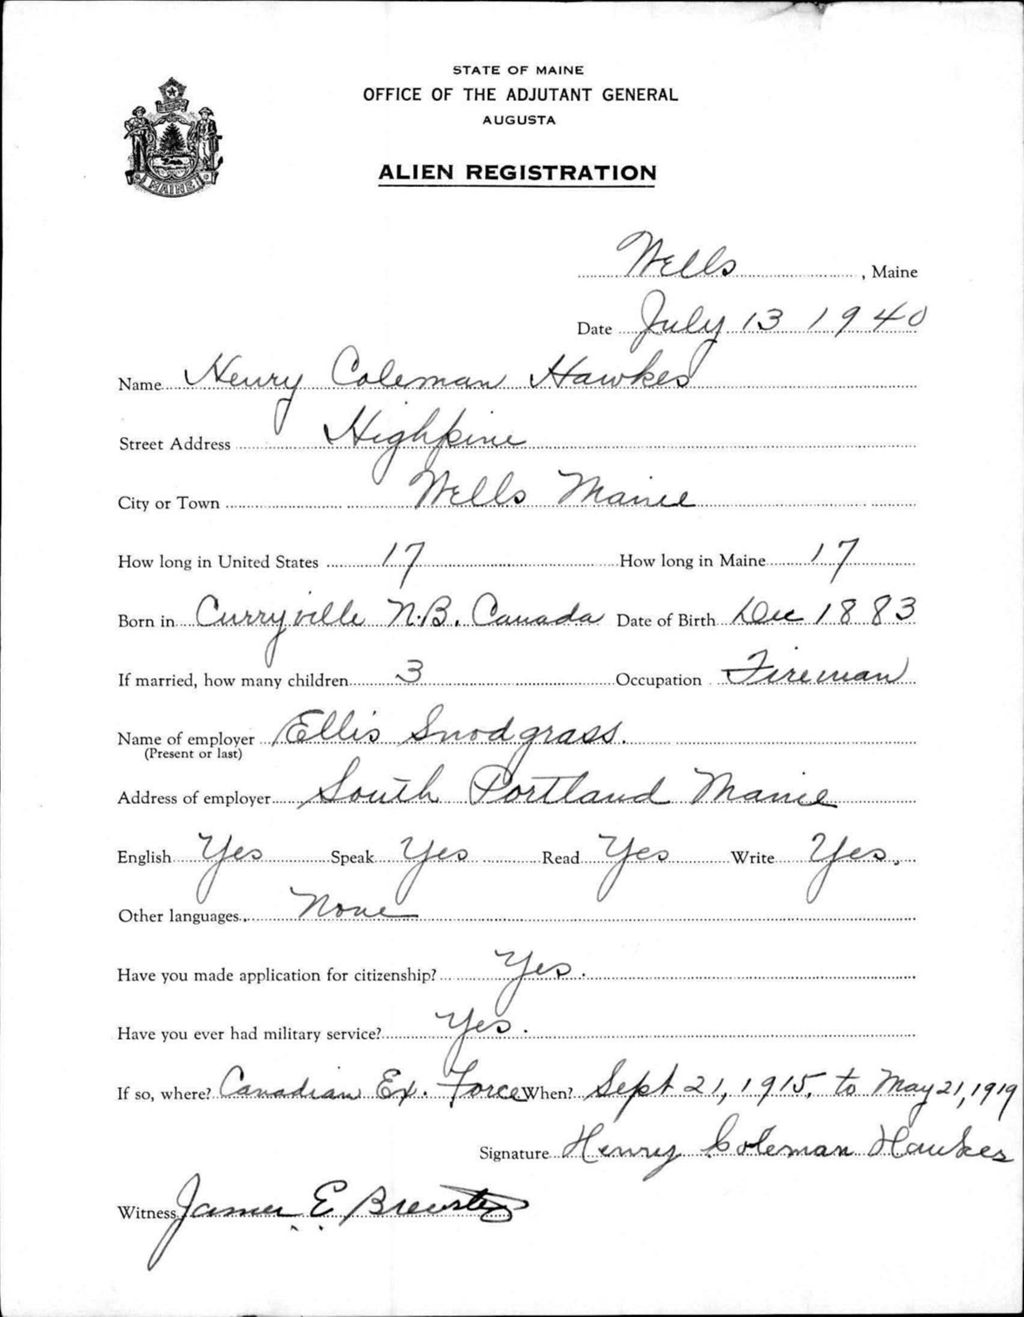 STATE OF MAINE
OFFICE OF THE ADJUTANT GENERAL
AUGUSTA
ALIEN REGISTRATION
MAINE
Wells, Maine
Date July 13 1940
Name Henry Coleman Hawkes
Street Address Highpine
City or Town Wells Maine
How long in United States 17 How long in Maine 17
Born in Curryville N.B. Canada Date of Birth Dec 1883
If married, how many children 3 Occupation Fireman
Name of employer Ellis Snodgrass.
(Present or last)
Address of employer South Portland Maine
English Yes Speak Yes Read Yes Write Yes.
Other languages None
Have you made application for citizenship? Yes.
Have you ever had military service? Yes.
If so, where? Canadian Ex. Force When? Sept 21, 1915, to May 21, 1919
Signature Henry Coleman Hawkes
Witness James E Brewster